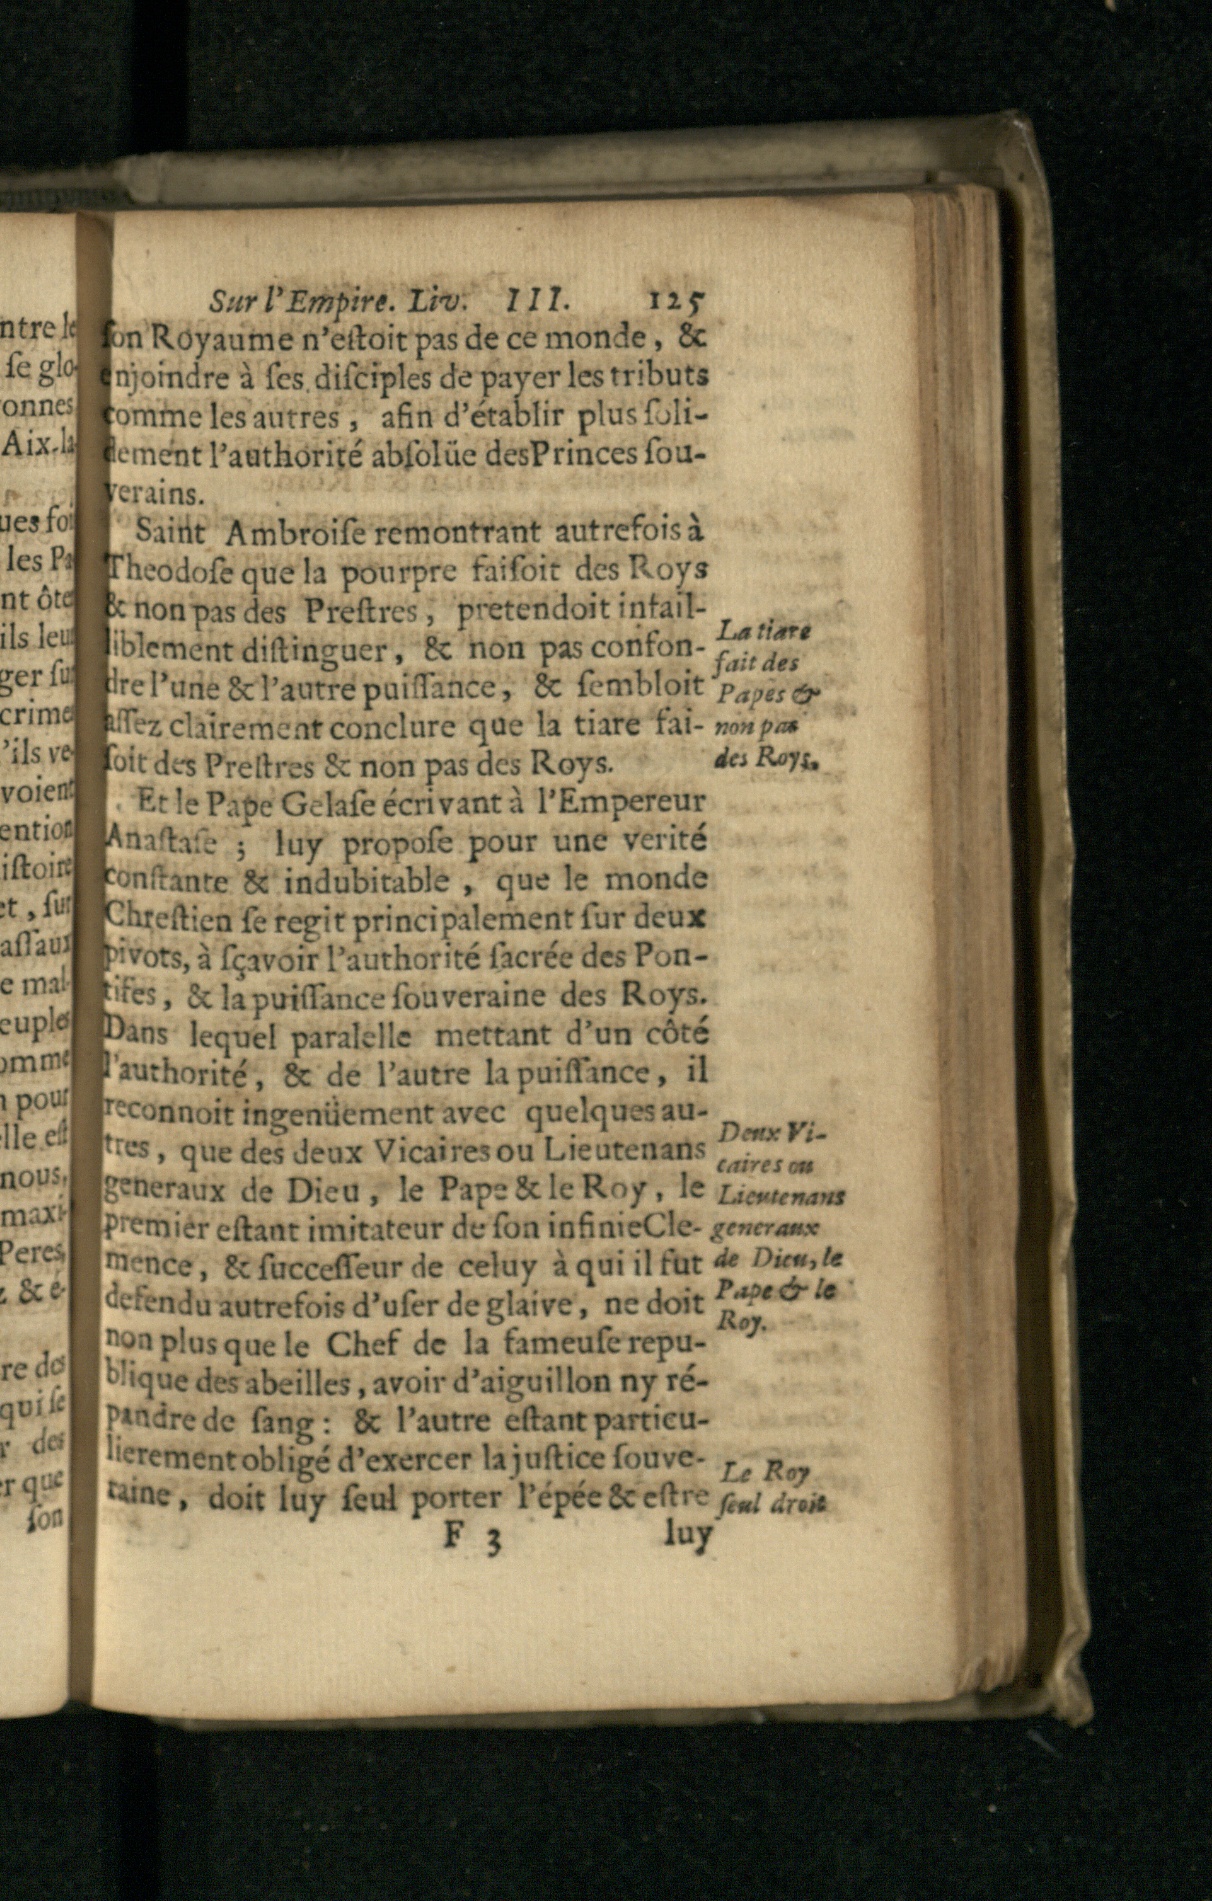 Sur l'Empire. Liv. III. 125
ſon Royaume n'eſtoit pas de ce monde, &
enjoindre à ſes diſciples de payer les tributs
comme les autres, afin d'établir plus ſoli-
dement l'authorité abſolüe desPrinces ſou-
verains.
Saint Ambroiſe remontrant autrefois à
Theodoſe que la pourpre faiſoit des Roys
& non pas des Preſtres, pretendoit infail-
liblement diſtinguer, & non pas confon-
dre l'une & l'autre puiſſance, & ſembloit
aſſez clairement conclure que la tiare fai-
ſoit des Preſtres & non pas des Roys.
La tiare
fait des
Papes &
non pas
des Roys.
Et le Pape Gelaſe écrivant à l'Empereur
Anaſtaſe ; luy propoſe pour une verité
conſtante & indubitable, que le monde
Chreſtien ſe regit principalement ſur deux
pivots, à ſçavoir l'authorité ſacrée des Pon-
tifes, & la puiſſance ſouveraine des Roys.
Dans lequel paralelle mettant d'un côté
l'authorité, & de l'autre la puiſſance, il
reconnoit ingenüement avec quelques au-
tres, que des deux Vicaires ou Lieutenans
generaux de Dieu, le Pape & le Roy, le
premier eſtant imitateur de ſon infinieCle-
mence, & ſucceſſeur de celuy à qui il fut
defendu autrefois d'uſer de glaive, ne doit
non plus que le Chef de la fameuſe repu-
blique des abeilles, avoir d'aiguillon ny ré-
pandre de ſang : & l'autre eſtant particu-
lierement obligé d'exercer la juſtice ſouve-
raine, doit luy ſeul porter l'épée & eſtre
Deux Vi-
caires ou
Lieutenans
generaux
de Dieu, le
Pape & le
Roy.
Le Roy
ſeul droit
F 3 luy
ntre le
ſe glo-
onnes
Aix-la
ues foi
les Pa
nt ôte
ils leu
ger ſu
crime
'ils ve-
voient
ention
iſtoire
et, ſur
aſſaux
e mal-
euples
omme
n pour
lle eſt
nous,
maxi-
Peres,
& e-
re des
qui ſe
r des
er que
ſon